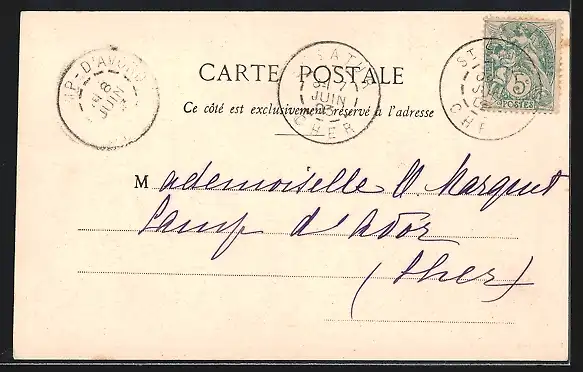 CARTE POSTALE
Ce côté est exclusivement réservé à l'adresse
Mademoiselle O. Marquet
Camp d'Avor
(Cher)
ST-SATUR
7
JUIN
03
CHER
5
POSTES